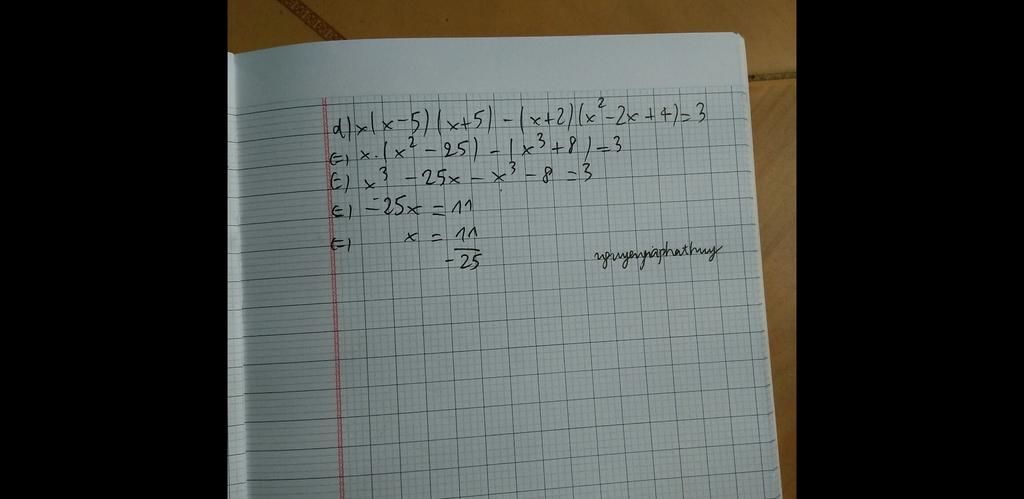 d) x(x-5)(x+5) - (x+2)(x²-2x+4)=3
(=) x.(x² - 25) - (x³+8)=3
(=) x³ - 25x - x³ - 8 = 3
(=) -25x = 11
(=) x = 11/-25
nguyengiaphathuy